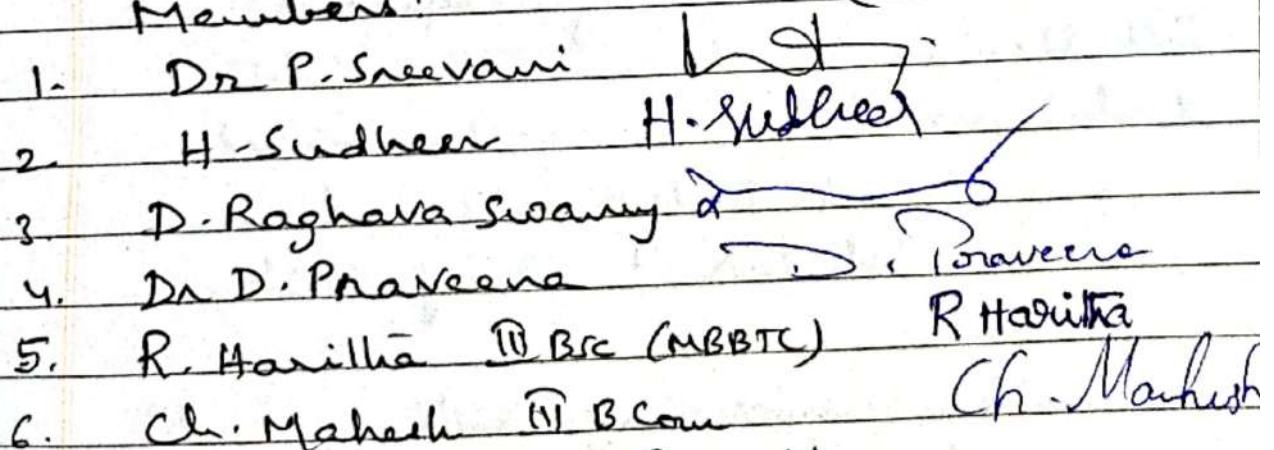 Members:
1. Dr P. Sreevani
2. H. Sudheer H. Sudheer
3. D. Raghava Swamy
4. Dr D. Praveena D. Praveena
5. R. Haritha III BSc (MBBTC) R Haritha
6. Ch. Mahesh III B Com Ch. Mahesh